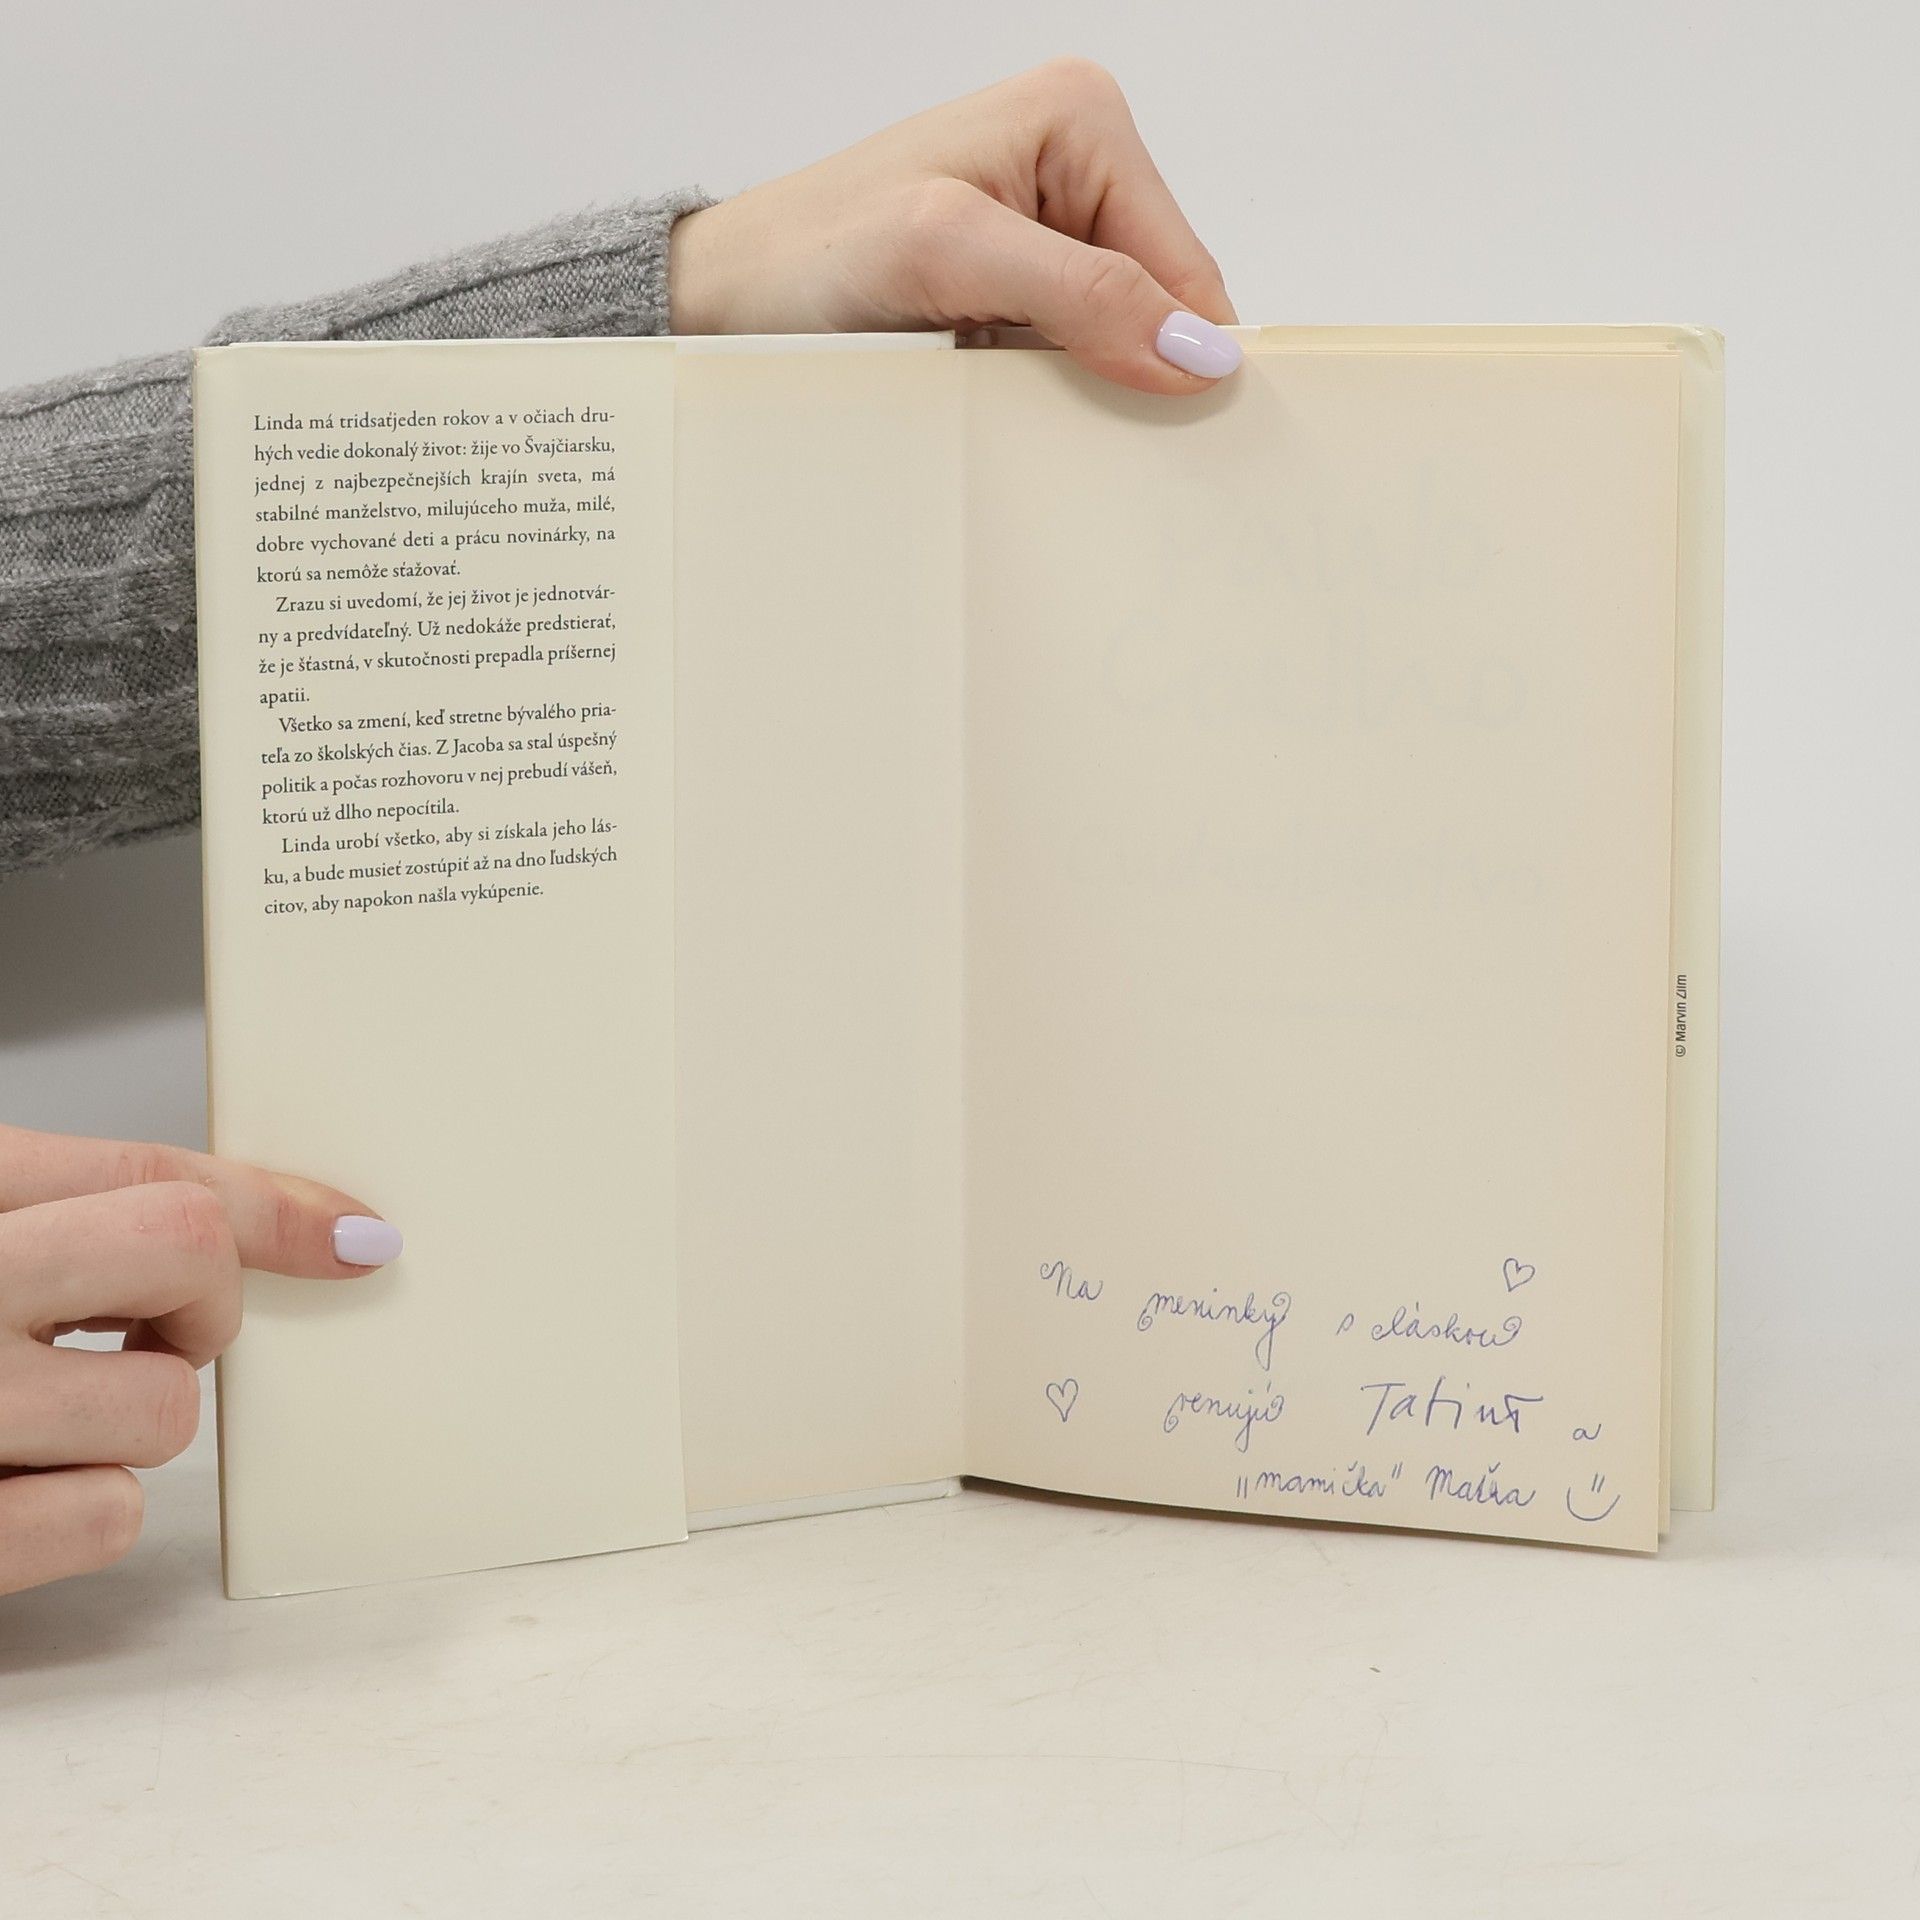 Linda má tridsaťjeden rokov a v očiach dru-
hých vedie dokonalý život: žije vo Švajčiarsku,
jednej z najbezpečnejších krajín sveta, má
stabilné manželstvo, milujúceho muža, milé,
dobre vychované deti a prácu novinárky, na
ktorú sa nemôže sťažovať.
Zrazu si uvedomí, že jej život je jednotvár-
ny a predvídateľný. Už nedokáže predstierať,
že je šťastná, v skutočnosti prepadla príšernej
apatii.
Všetko sa zmení, keď stretne bývalého pria-
teľa zo školských čias. Z Jacoba sa stal úspešný
politik a počas rozhovoru v nej prebudí vášeň,
ktorú už dlho nepocítila.
Linda urobí všetko, aby si získala jeho lás-
ku, a bude musieť zostúpiť až na dno ľudských
citov, aby napokon našla vykúpenie.
© Marvin Zilm
Na meninky s láskou
venujú a
„mamička"